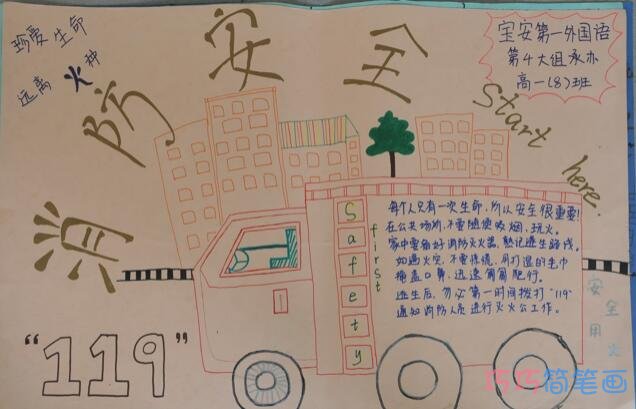 珍爱生命
远离火种
消防安全
start here.
宝安第一外国语
第4大组承办
高一(8)班
Safety
first
每个人只有一次生命,所以安全很重要!
在公共场所,不要随便吸烟,玩火。
家中要备好消防灭火器,熟记逃生路线。
如遇火灾,不要惊慌,用打湿的毛巾
掩盖口鼻,迅速匍匐爬行。
逃生后,务必第一时间拨打"119"
通知消防人员进行灭火工作。
安全用火
"119"
巧巧简笔画